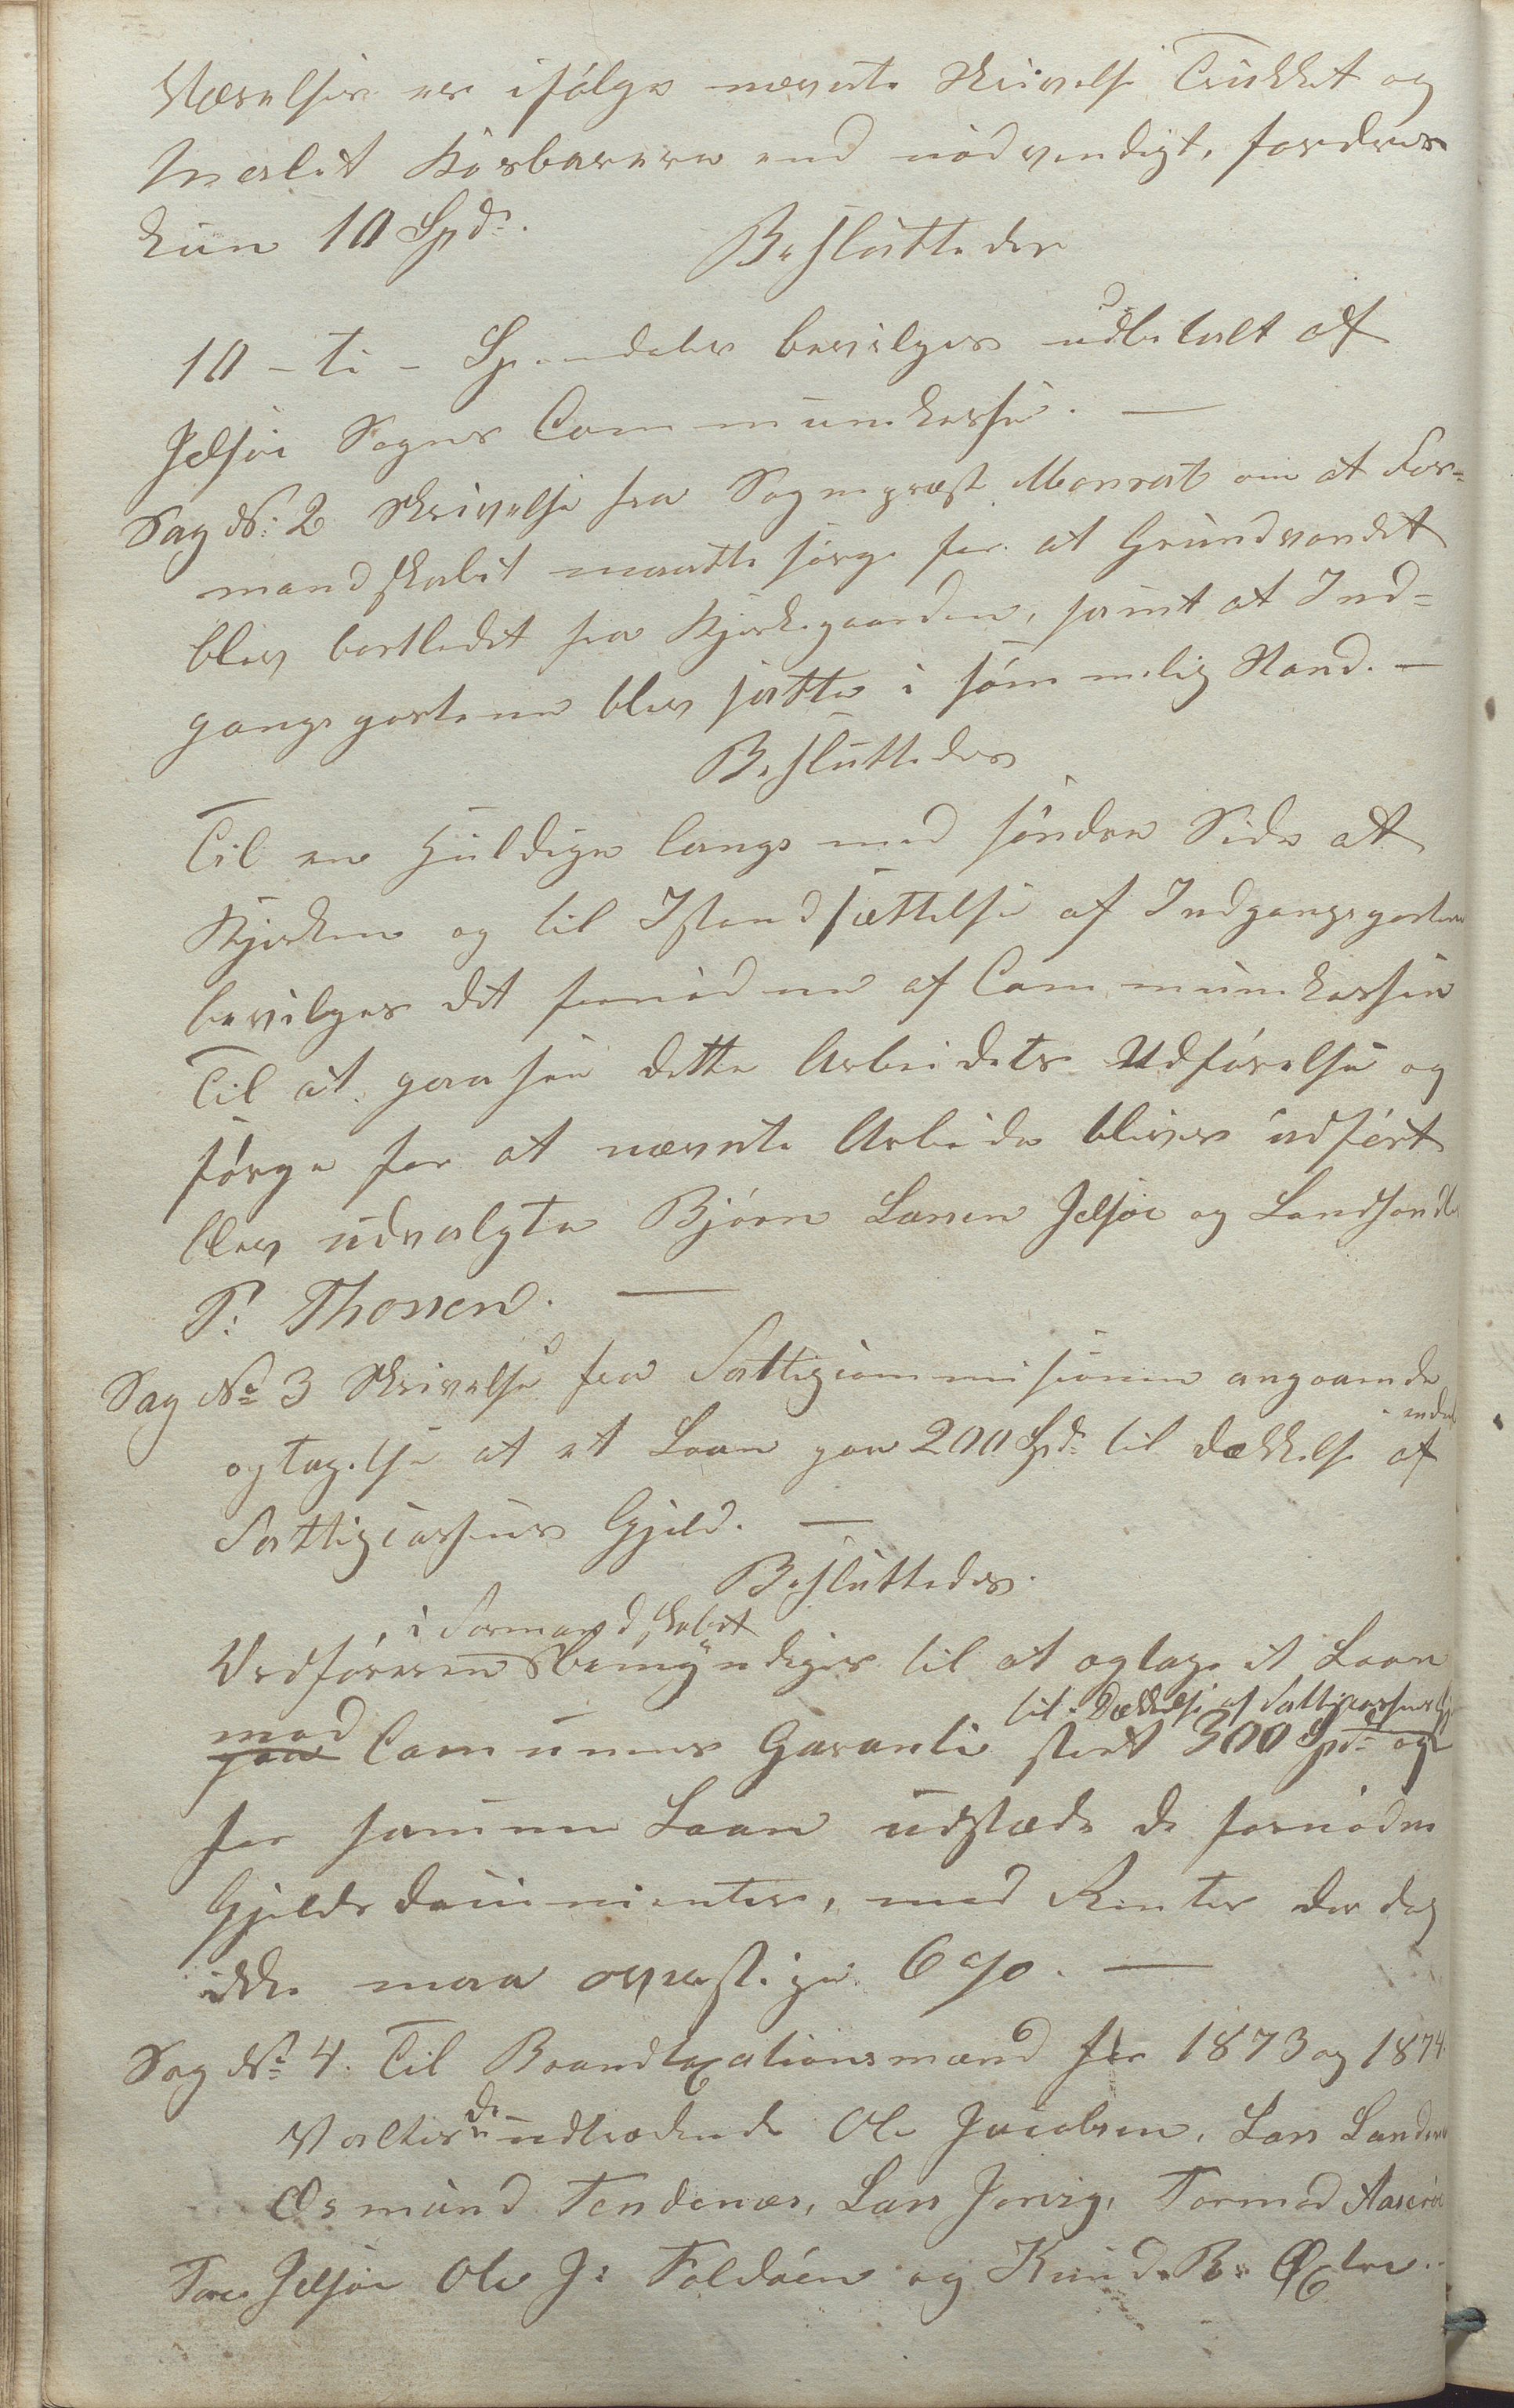 Værelser er ifølge nævnte Skrivelse Trukket og
Malet Kosbarere end nødvendigt, fordres
kun 10 Spd.
Besluttedes
10 – ti – Speciedaler bevilges udbetalt af
Jelsøe Sogns Communekasse. —
Sag No: 2 Skrivelse fra Sognepræst Monrat om at For-
mandskabet maatte sørge for at Grundvandet
blev bortledet fra Kjirkegaarden, samt at Ind-
gangsportene blev satte i sømmelig Stand. —
Besluttedes
Til en Huldige langs med søndre Side af
Kjirken og til Istandsættelse af Indgangsportene
bevilges det fornødne af Communekassen
Til at paase dette Arbeidets Udførelse og
sørge for at nævnte Arbeide bliver udført
blev udvalgte Bjørn Larsen Jelsøe og Landhandler
T: Thorsen. —
Sag No 3 Skrivelse fra Fattigcommisionen angaaende
optagelse af et Laan paa 200 Spd. til Dækkelse af
Fattigcassens Gjeld. —
Besluttedes.
i Formandskabet
Ordføreren bemyndiges til at optage et Laan
til Dækkelse af Fattigcassens Gj
mod
paa Comunens Garanti stort 300 Spd. og
for samme Laan udstæde de fornødne
Gjeldsdocumenter, med Renter der dog
ikke maa overstige 6 %. —
Sag No 4. Til Brandtaxationsmænd for 1873 og 1874
Valtes de udtrædende Ole Jacobsen, Lars Landsnes
Osmund Tendenæs, Lars Jervig, Tormod Aaserøe
Tore Jelsøe Ole J: Foldøen og Knud B: Øxtre.